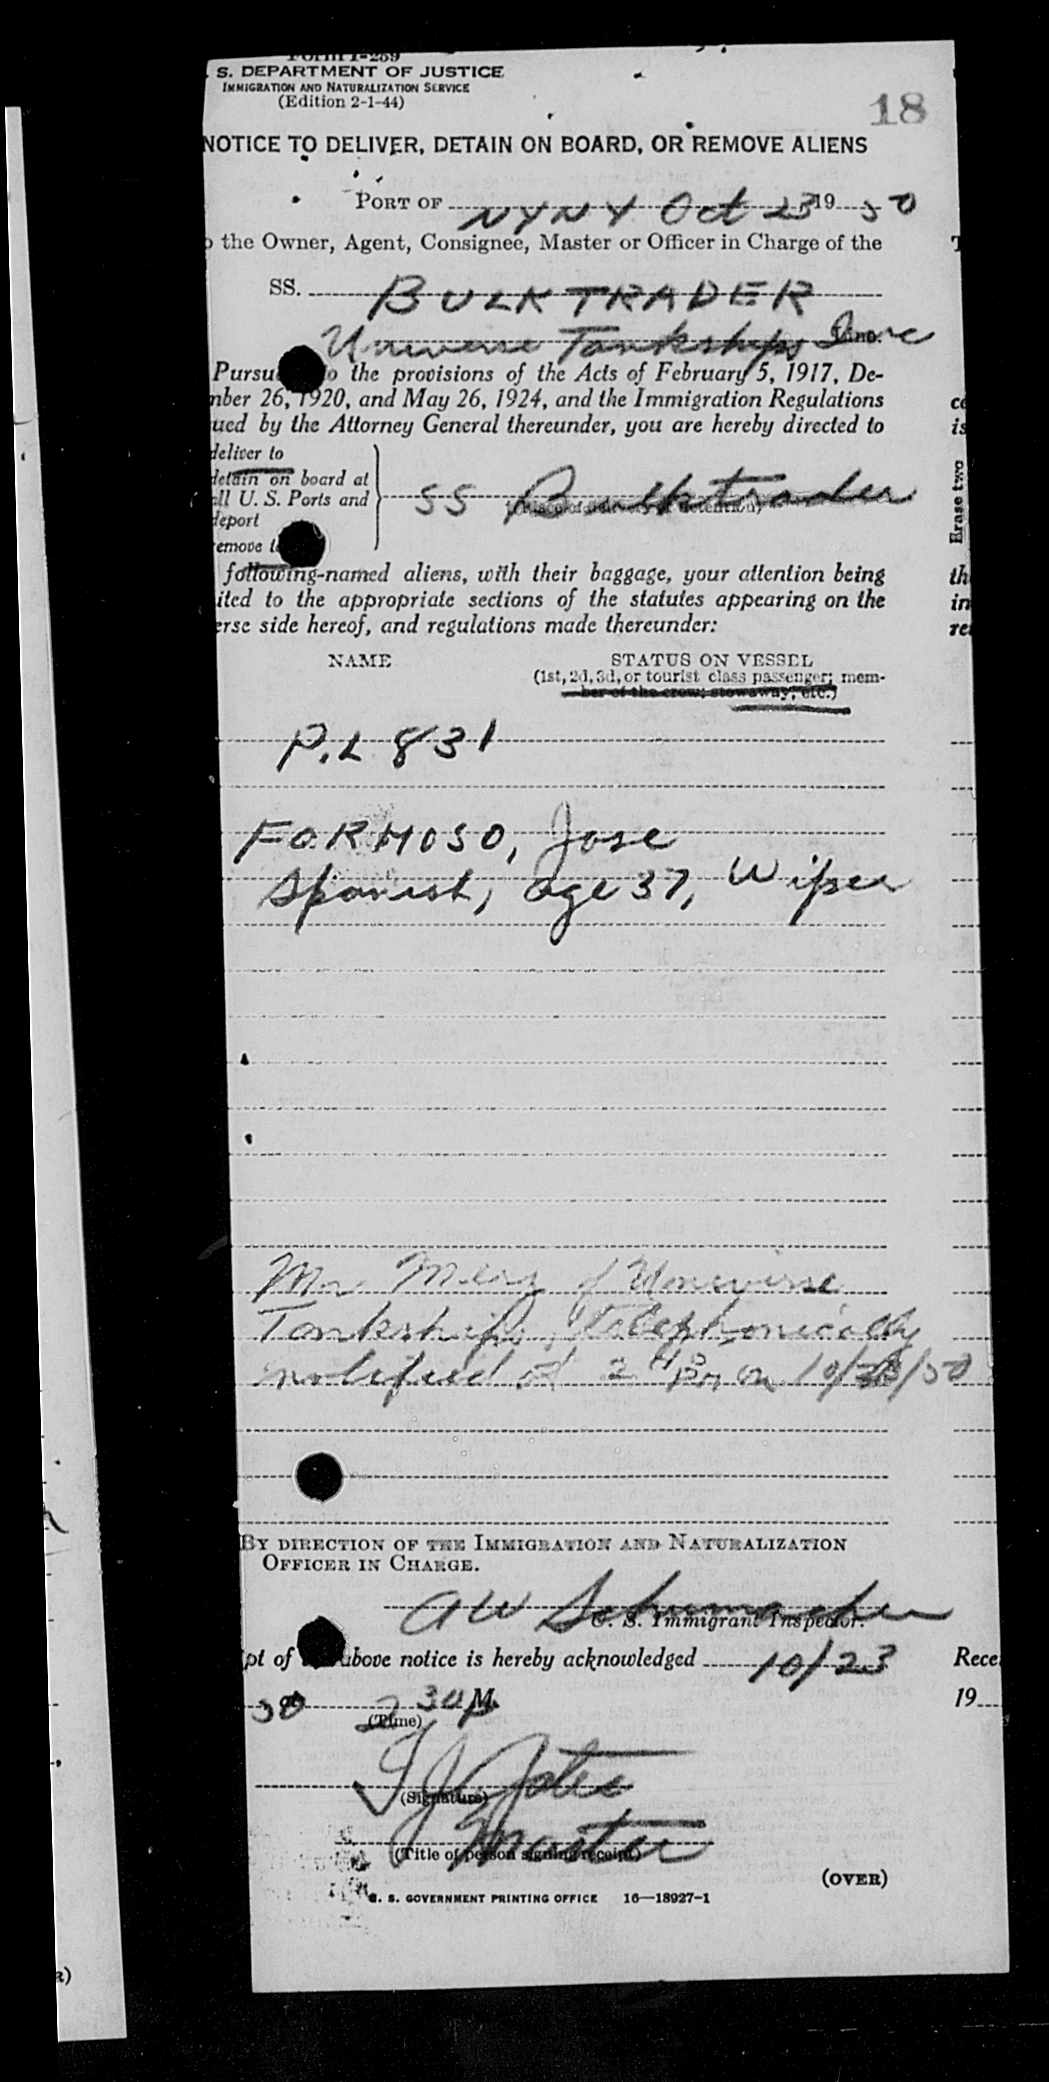 Form I-259
S. DEPARTMENT OF JUSTICE
IMMIGRATION AND NATURALIZATION SERVICE
(Edition 2-1-44)
18
NOTICE TO DELIVER, DETAIN ON BOARD, OR REMOVE ALIENS
PORT OF NYNY Oct 23 19 50
o the Owner, Agent, Consignee, Master or Officer in Charge of the
SS. BULKTRADER
Universe Tankships Inc
Pursu o the provisions of the Acts of February 5, 1917, De-
mber 26, 1920, and May 26, 1924, and the Immigration Regulations
ued by the Attorney General thereunder, you are hereby directed to
deliver to
detain on board at
all U. S. Ports and
deport
emove t
SS Bulktrader
(Place of delivery or detention)
following-named aliens, with their baggage, your attention being
ited to the appropriate sections of the statutes appearing on the
erse side hereof, and regulations made thereunder:
NAME STATUS ON VESSEL
(1st, 2d, 3d, or tourist class passenger; mem-
ber of the crew; stowaway; etc.)
P.L 831
FORMOSO, Jose
Spanish, age 37, Wiper
Mr of Universe
Tankships, telephonically
notified at 2 PM on 10/23/50
BY DIRECTION OF THE IMMIGRATION AND NATURALIZATION
OFFICER IN CHARGE.
AW Schumacher
U. S. Immigrant Inspector.
pt of above notice is hereby acknowledged 10/23
50 2 30 P M.
(Time)
(Signature)
Master
(Title of person signing receipt)
(OVER)
U. S. GOVERNMENT PRINTING OFFICE 16—18927-1
Erase two
ce
is
th
in
re
Rece
19